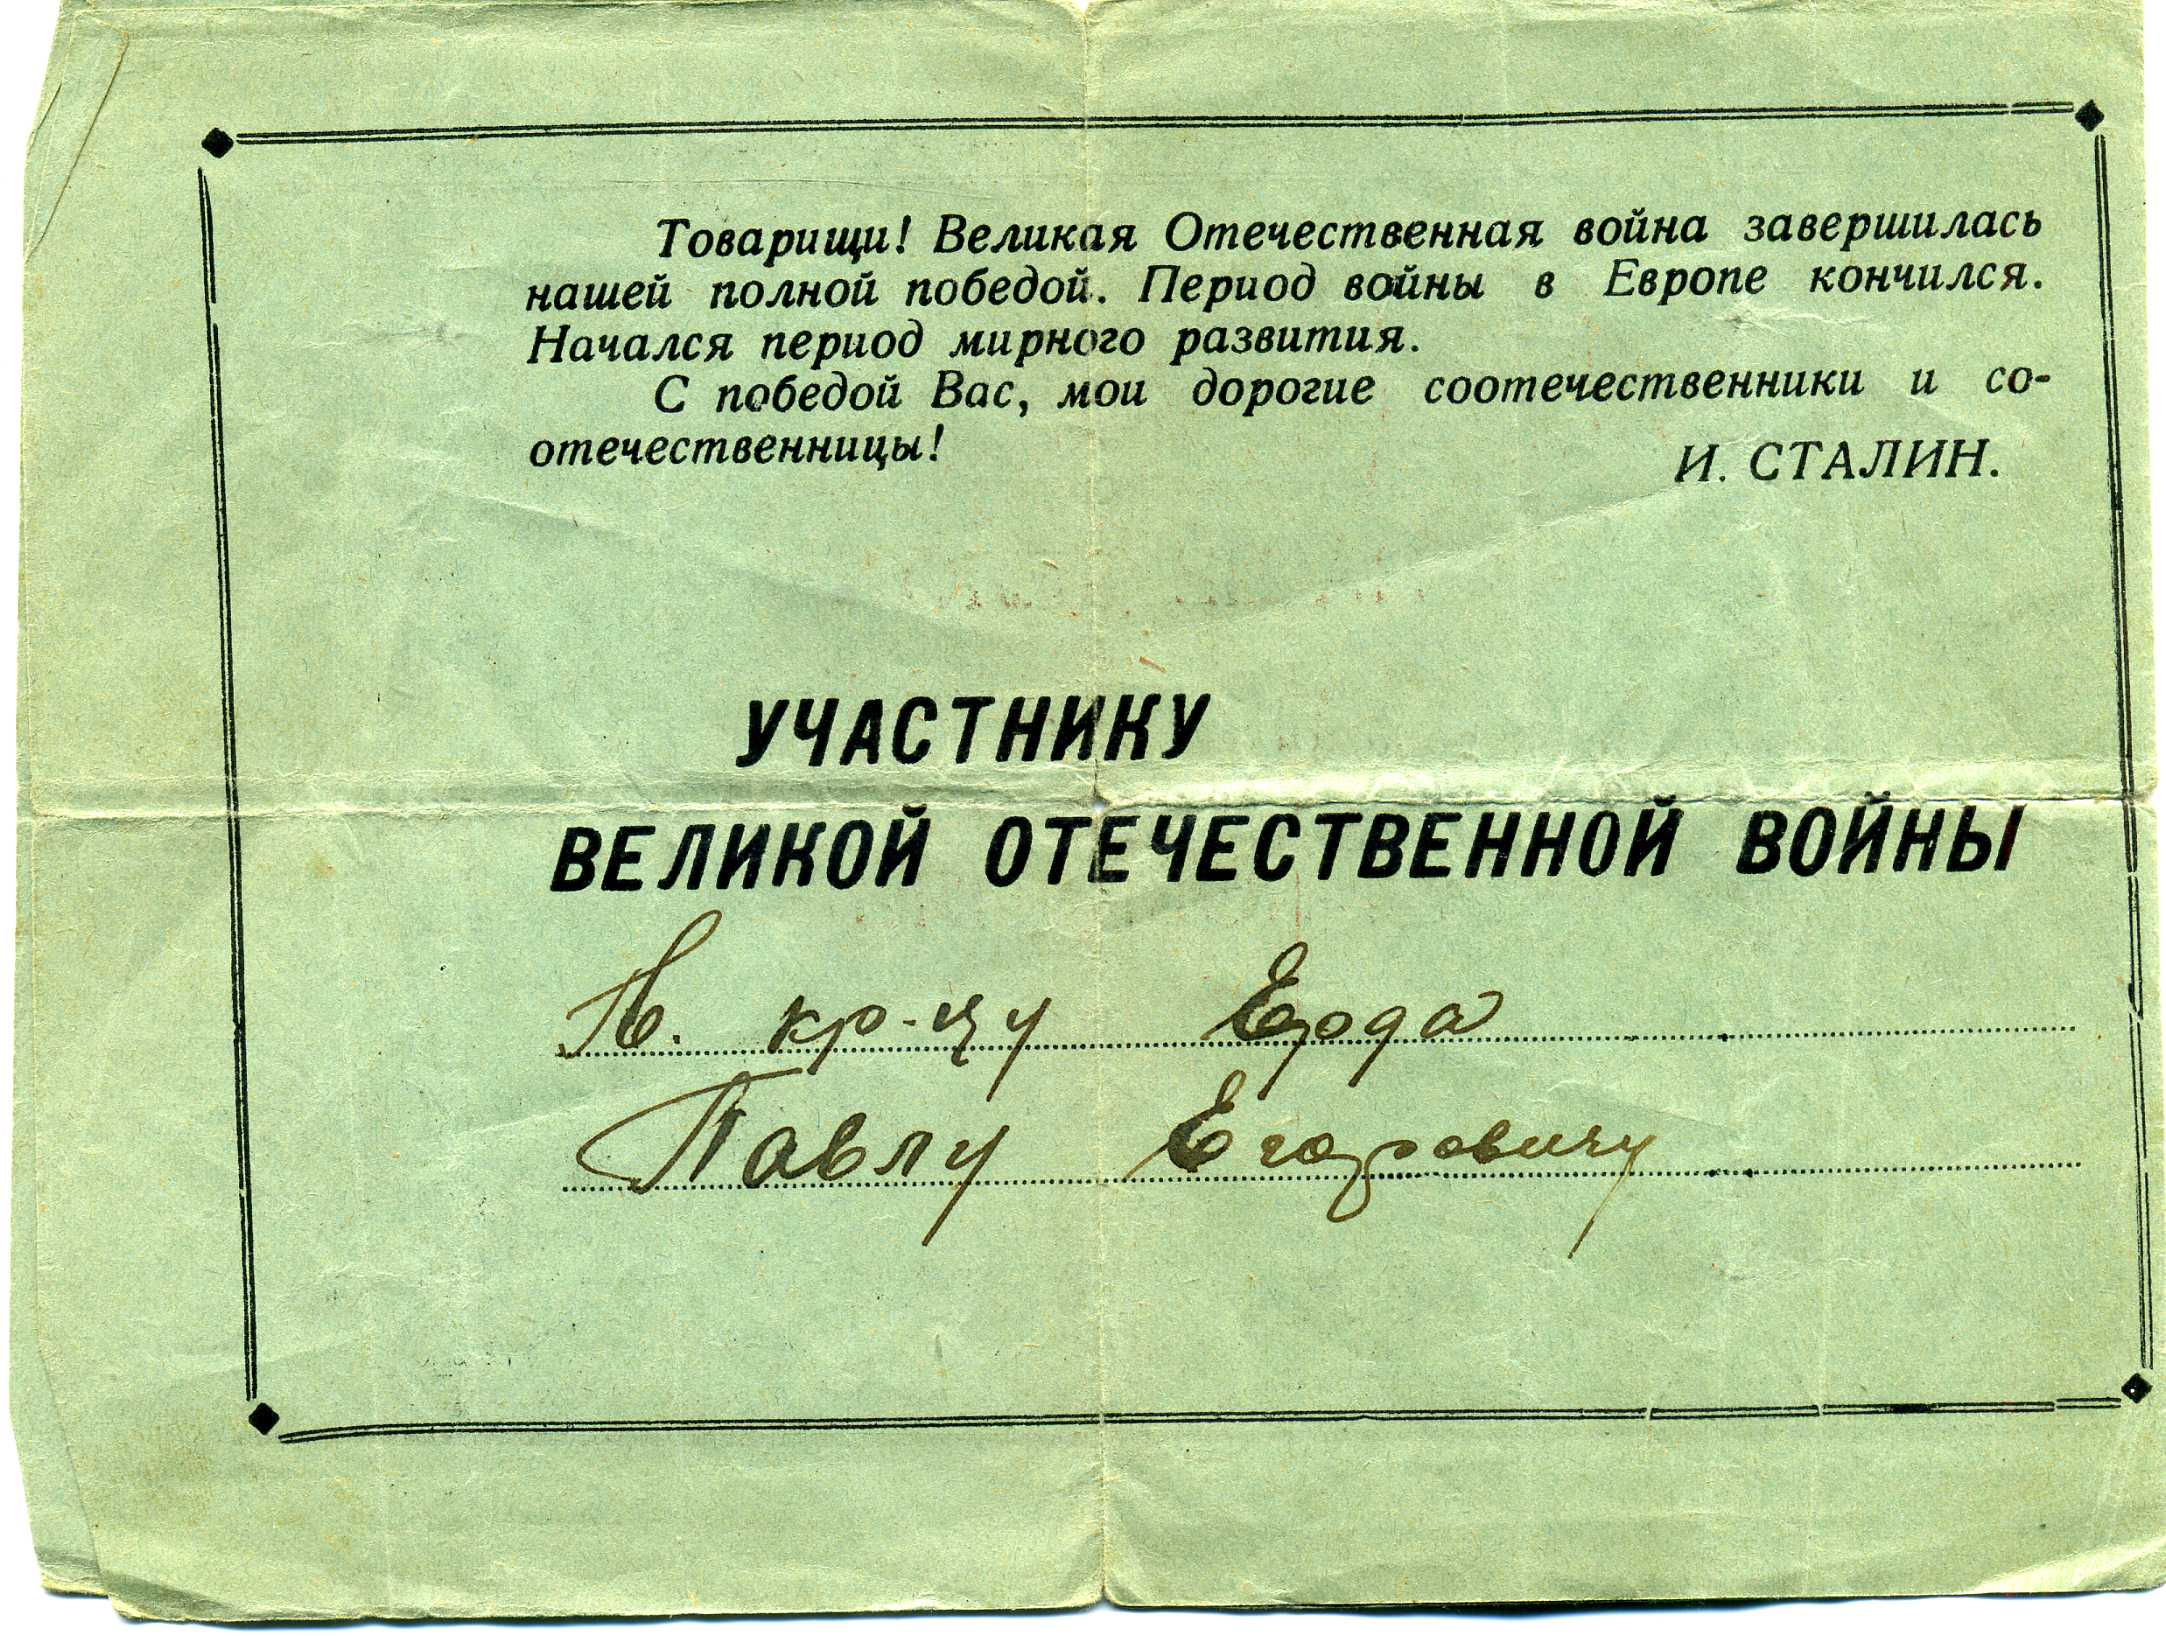 Товарищи! Великая Отечественная война завершилась
нашей полной победой. Период войны в Европе кончился.
Начался период мирного развития.
С победой Вас, мои дорогие соотечественники и со-
отечественницы!
И. СТАЛИН.
УЧАСТНИКУ
ВЕЛИКОЙ ОТЕЧЕСТВЕННОЙ ВОЙНЫ
кр-цу Ерда
Павлу Егоровичу